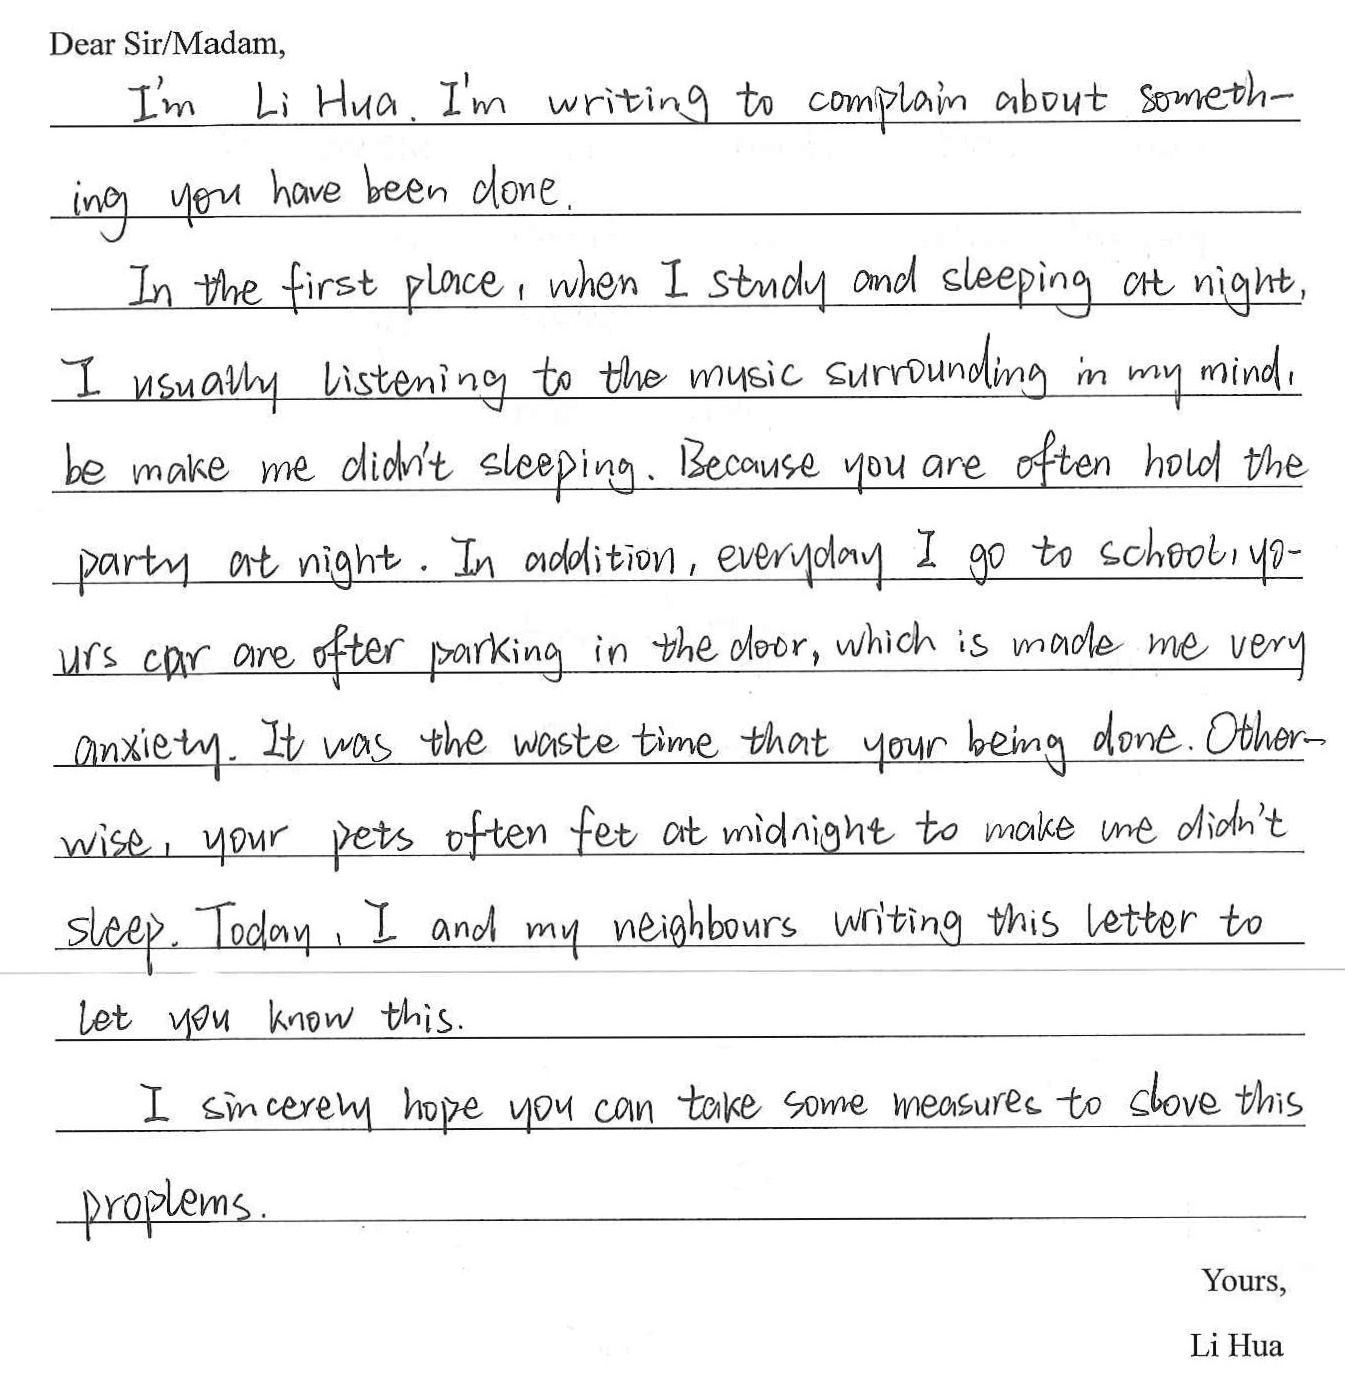 Dear Sir/Madam,
I'm Li Hua. I'm writing to complain about someth-
ing you have been done.
In the first place, when I study and sleeping at night,
I usually listening to the music surrounding in my mind,
be make me didn't sleeping. Because you are often hold the
party at night. In addition, everyday I go to school, yo-
urs car are ofter parking in the door, which is made me very
anxiety. It was the waste time that your being done. Other-
wise, your pets often fet at midnight to make me didn't
sleep. Today, I and my neighbours writing this letter to
let you know this.
I sincerely hope you can take some measures to slove this
proplems.
Yours,
Li Hua